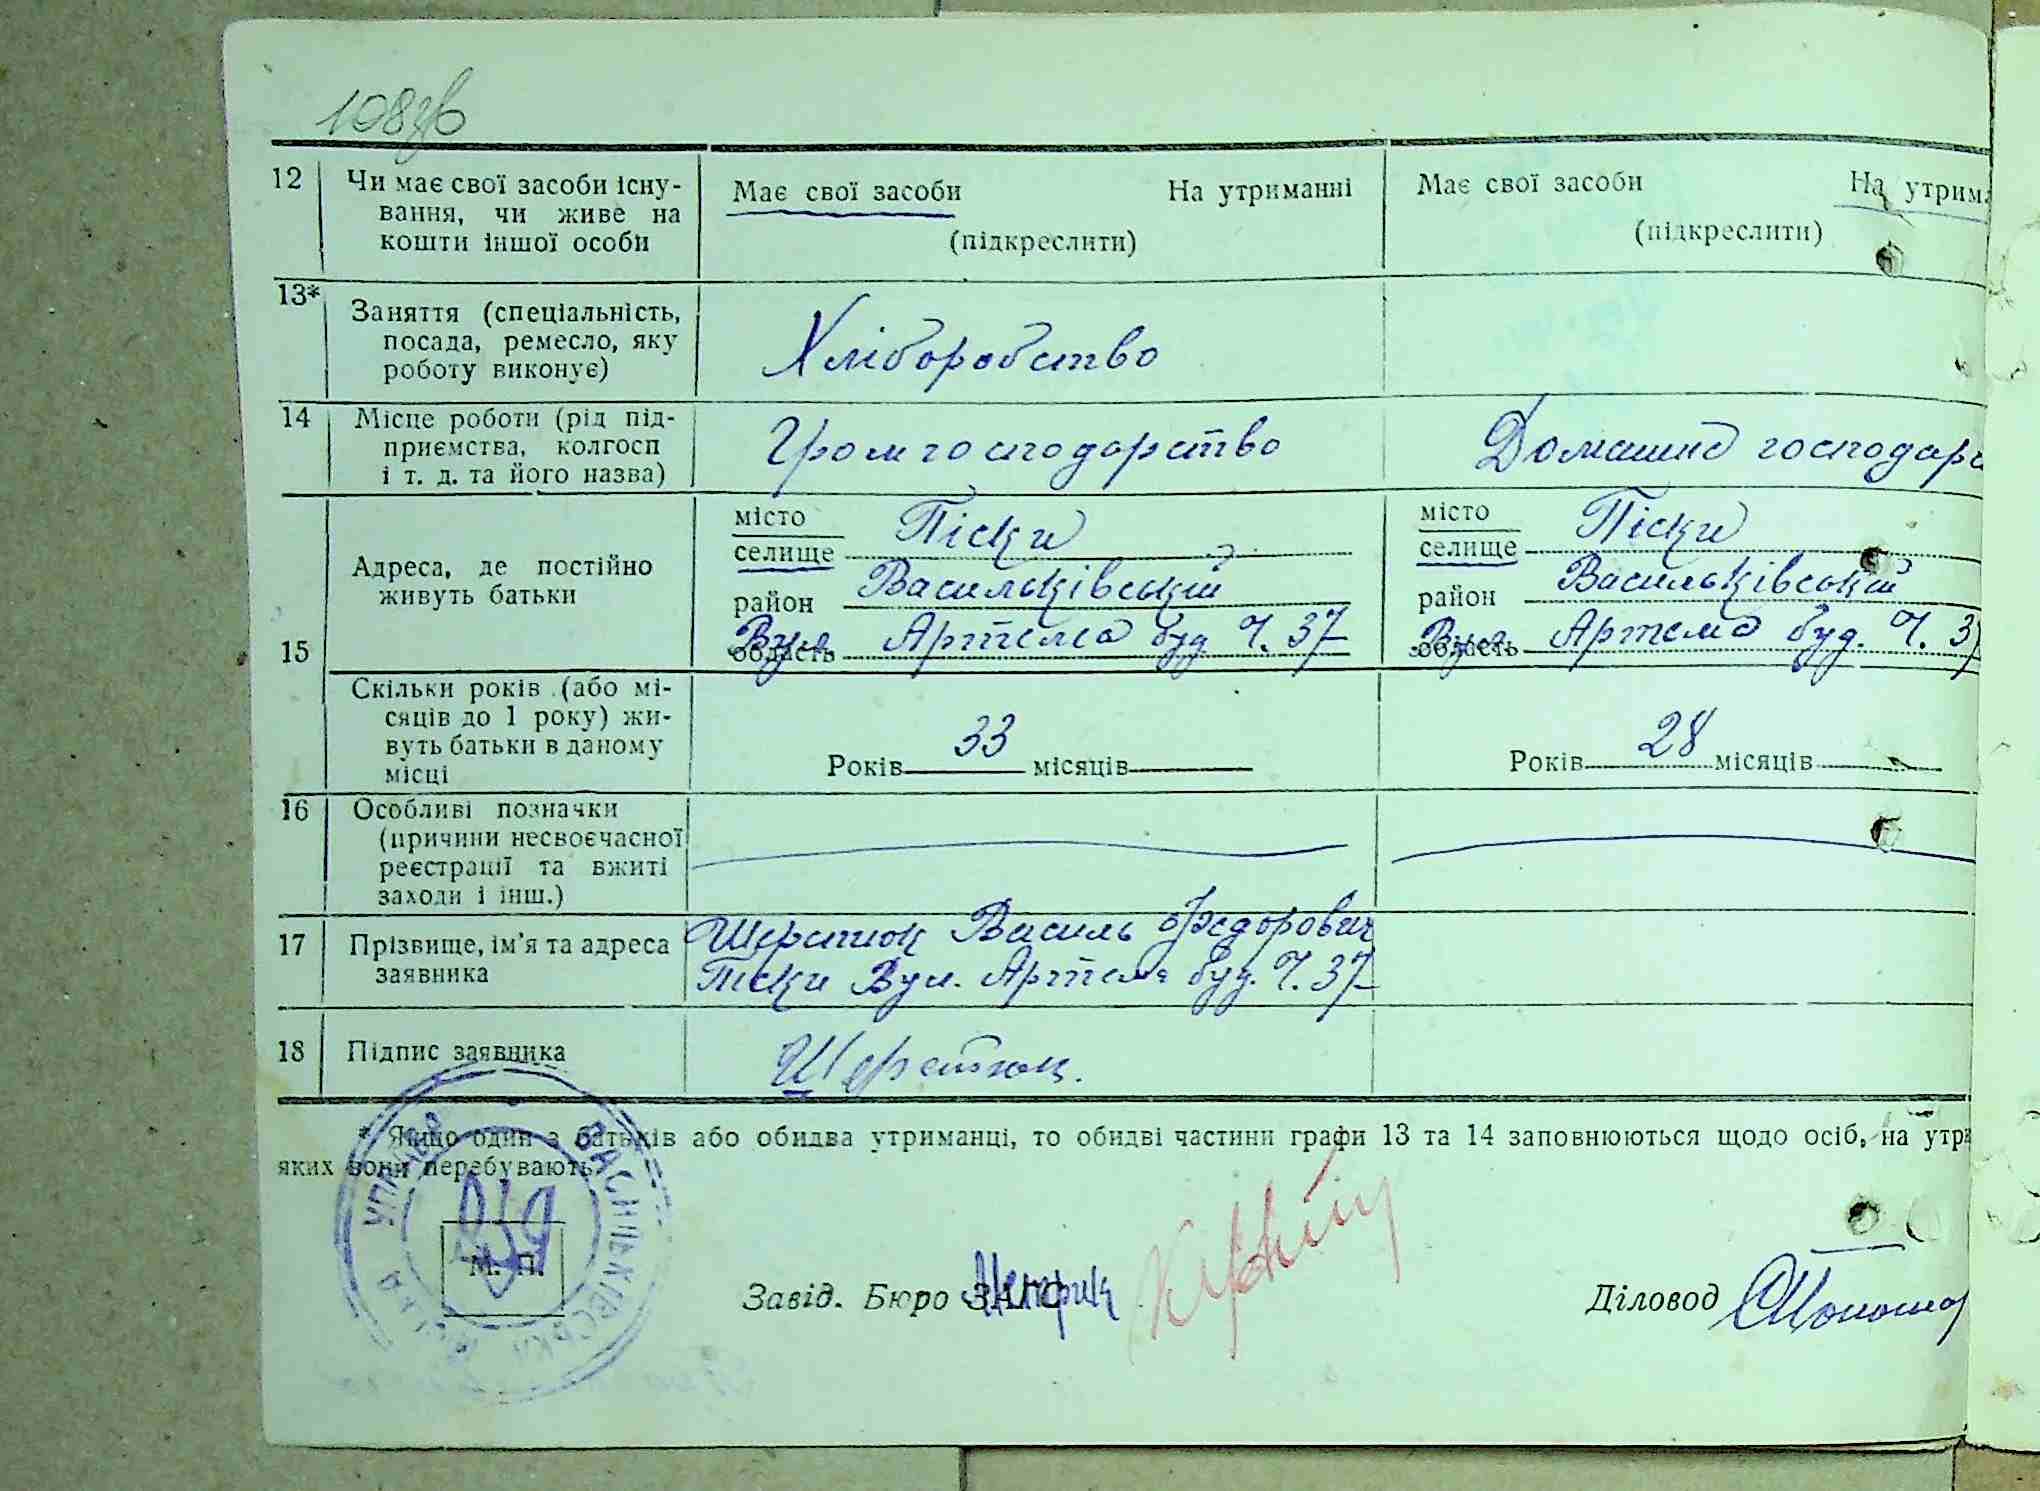 108зв
12 Чи має свої засоби існу- Має свої засоби На утриманні Має свої засоби На утрим
вання, чи живе на
кошти іншої особи (підкреслити) (підкреслити)
13* Заняття (спеціальність,
посада, ремесло, яку Хліборобство
роботу виконує)
14 Місце роботи (рід під-
приємства, колгосп Громгосподарство Домашнє господар
і т. д. та його назва)
місто Піски місто Піски
селище селище
Адреса, де постійно
живуть батьки
район Васильківський район Васильківський
15 область Вул. Артема буд Ч. 37 область Вул. Артема буд. Ч. 37
Скільки років (або мі-
сяців до 1 року) жи-
вуть батьки в даному
місці Років 33 місяців Років 28 місяців
16 Особливі позначки
(причини несвоєчасної
реєстрації та вжиті
заходи і інш.)
17 Прізвище, ім'я та адреса Василь Федорович
заявника Піски Вул. Артема буд. Ч. 37
18 Підпис заявника
* Якщо один з батьків або обидва утриманці, то обидві частини графи 13 та 14 заповнюються щодо осіб, на утри
яких вони перебувають.
УПРАВА ВАСИЛЬКІВСЬКА МІСЬКА
М. П.
Завід. Бюро ЗАГС Діловод